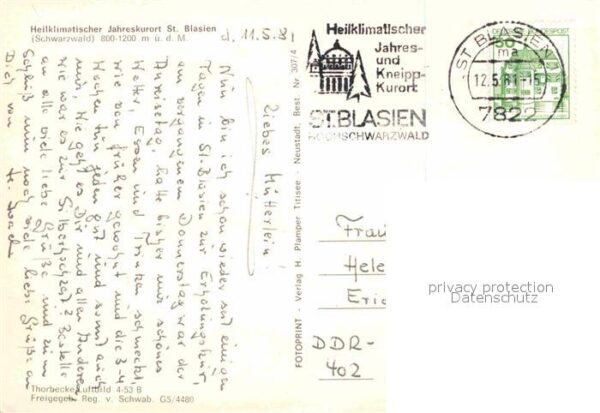 Heilklimatischer Jahreskurort St. Blasien
(Schwarzwald) 800-1200 m ü. d. M.
d. 11.5.81
Liebes Mütterlein!
Nun bin ich schon wieder seit einigen
Tagen in St. Blasien zur Erholungskur,
am vorgangenen Donnerstag war der
Anreisetag, hatte bisher nur schönes
Wetter, Essen und Trinken schmeckt,
wie von früher gewohnt und die 3-4
Wochen tun jedem gut und somit auch
mir. Wie geht es Dir und allen Anderen,
wie war es zur Silberhochzeit? Bestelle
an alle viele liebe Grüße und zum
Schluß nun noch viele liebe Grüße an
Dich von
Thorbecke-Luftbild 4-53 B
Freigegeb. Reg. v. Schwab. G5/4480
FOTOPRINT - Verlag H. Plamper Titisee - Neustadt. Best. Nr 307/4
Heilklimatischer
Jahres-
und
Kneipp-
Kurort
ST.BLASIEN
HOCHSCHWARZWALD
ST BLASIEN
ma
12.5.81-15
7822
50
Frau
Hele
Eric
DDR-
402
privacy protection
Datenschutz